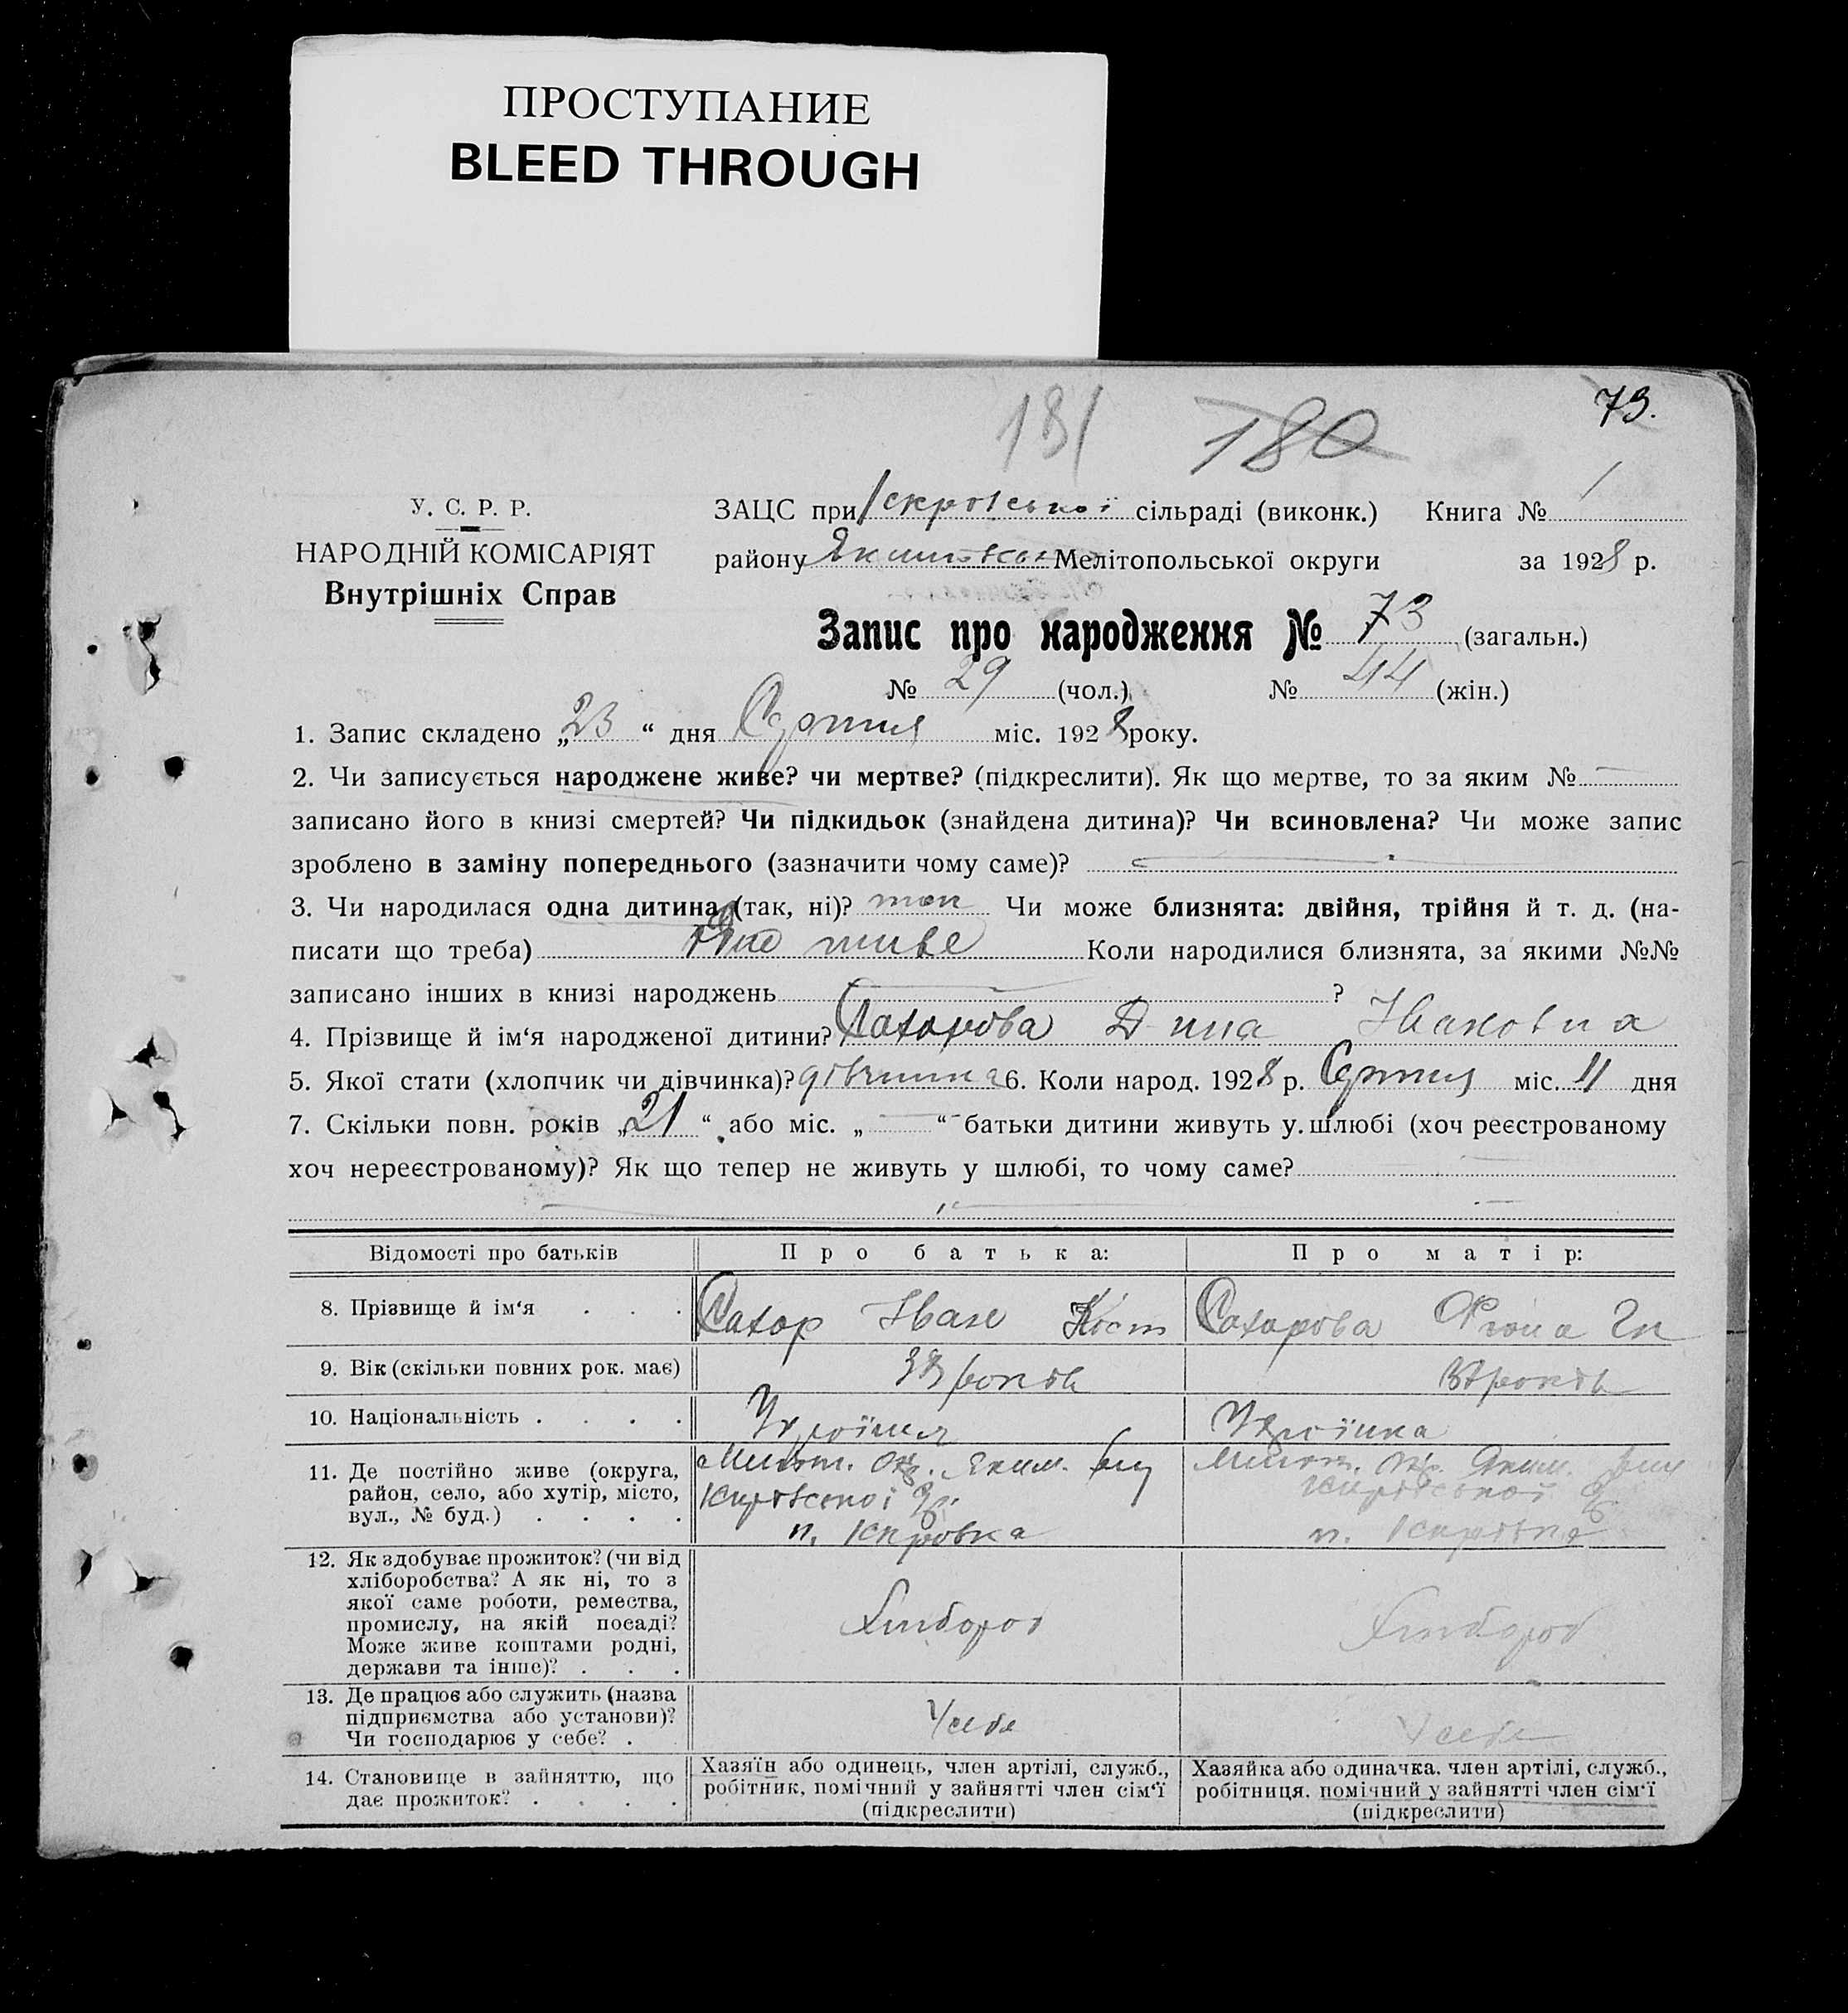 ПРОСТУПАНИЕ
BLEED THROUGH
73.
181 180
У. С. Р. Р.
НАРОДНІЙ КОМІСАРІЯТ
Внутрішніх Справ
ЗАЦС при сільраді (виконк.) Книга № 1
району Мелітопольської округи за 1928 р.
Запис про народження № 73 (загальн.)
№ 29 (чол.) № 44 (жін.)
1. Запис складено „23“ дня Серпня міс. 1928 року.
2. Чи записується народжене живе? чи мертве? (підкреслити). Як що мертве, то за яким № —
записано його в книзі смертей? Чи підкидьок (знайдена дитина)? Чи всиновлена? Чи може запис
зроблено в заміну попереднього (зазначити чому саме)?
3. Чи народилася одна дитина (так, ні)? так Чи може близнята: двійня, трійня й т. д. (на-
писати що треба) живе Коли народилися близнята, за якими №№
записано інших в книзі народжень ?
4. Прізвище й ім‘я народженої дитини? Сахарова Дина Ивановна
5. Якої стати (хлопчик чи дівчинка)? дівчина 6. Коли народ. 1928 р. Серпня міс. 11 дня
7. Скільки повн. років „21“ або міс. „—“ батьки дитини живуть у шлюбі (хоч реєстрованому
хоч нереєстрованому)? Як що тепер не живуть у шлюбі, то чому саме?
Відомості про батьків Про батька: Про матір:
8. Прізвище й ім‘я . . . Сахар Иван Кост Сахарова
9. Вік (скільки повних рок. має) років років
10. Національність . . . . Україн Українка
11. Де постійно живе (округа,
район, село, або хутір, місто,
вул., № буд.) . . . .
Мелит. окр. Яким. Мелит. окр. Яким.
Кирівської Кирівської
п. Кирівка п. Кирівка
12. Як здобуває прожиток? (чи від
хліборобства? А як ні, то з
якої саме роботи, ремества,
промислу, на якій посаді?
Може живе коштами родні,
держави та інше)? . . .
Хлібороб Хлібороб
13. Де працює або служить (назва
підприємства або установи)?
Чи господарює у себе? .
У себе У себе
14. Становище в зайняттю, що
дає прожиток? . . . .
Хазяїн або одинець, член артілі, служб.,
робітник, помічний у зайнятті член сім‘ї
(підкреслити)
Хазяйка або одиначка, член артілі, служб.,
робітниця, помічний у зайнятті член сім‘ї
(підкреслити)